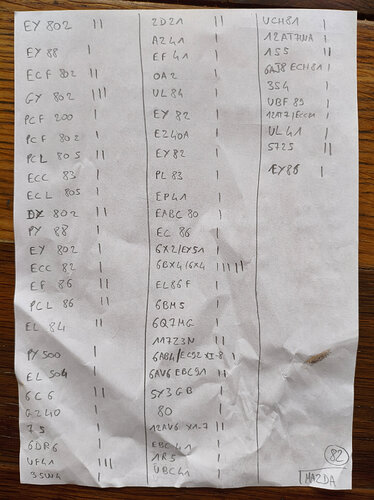 EY 802 ||
EY 88 |
ECF 802 ||
GY 802 |||
PCF 200 |
PCF 802 |
PCL 805 ||
ECC 83 |
ECL 805 |
DY 802 ||
PY 88 |
EY 802 |
ECC 82 |
EF 86 ||
PCL 86 ||
EL 84 ||
PY 500 |
EL 504 |
6C6 |
GZ40 |
75 |
6DR6 |
UF41 |||
35W4 |
2D21 ||
AZ41 |
EF 41 |
OA2 |
UL 84 |
EY 82 |
EZ40A |
EY82 |
PL 83 |
EP41 |
EABC 80 |
EC 86 |
6X2/EY51 |
6BX4/6X4 |||||
EL86F |
6BM5 |
6Q7MG |
11723N |
6AB4/EC92 XI-8 |
6AV6 EBC91 |
5Y3GB |
80 |
12AV6 X1-7 |
EBC41 |
1R5 |
UBC41 |
UCH81 |
12AT7WA |
1S5 ||
6AJ8 ECH81 |
354 |
UBF 89 |
12AT7/ECC81 |
UL41 |
5725 ||
EY86 |
82
MAZDA